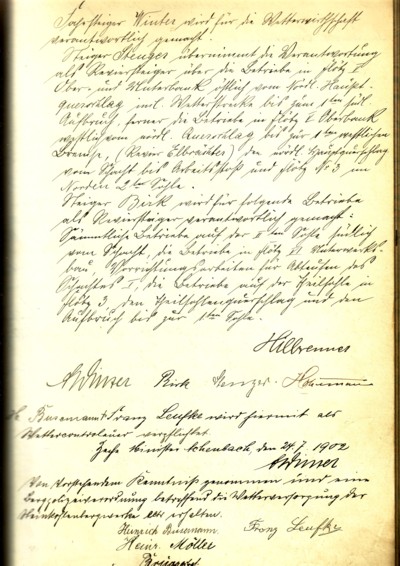 Fahrsteiger Winter wird für die Wetterwirthschaft
verantwortlich gemacht.
Steiger Stenger übernimmt die Verantwortung
als Reviersteiger über die Betriebe in Flötz I
Ober- und Unterbank östlich vom nördl. Haupt-
querschlag incl. Wetterstrecke bis zum 1ten südl.
Aufbruch, ferner die Betriebe in Flötz I Oberbank
westlich vom nördl. Querschlag bis zur 1ten westlichen
Bremse, (Revier Elbrächter) den nördl. Hauptquerschlag
vom Schacht bis Arbeitsstoß und Flötz No 3 im
Norden 2te Sohle.
Steiger Birk wird für folgende Betriebe
als Reviersteiger verantwortlich gemacht:
Sämmtliche Betriebe auf der 2ten Sohle südlich
vom Schacht, die Betriebe in Flötz VI Unterwerks-
bau, Vorrichtungsarbeiten für Abteufen des
Schachtes I, die Betriebe auf der Theilsohle in
Flötz 3, den Theilsohlenquerschlag und den
Aufbruch bis zur 1ten Sohle.
Winter Birk Stenger
Franz Leufke wird hiermit als
Wettercontroleur verpflichtet
Zeche Minister Achenbach, den 24.7.1902
Winter
Von Vorstehendem Kenntniß genommen und eine
Bergpolizeiverordnung betreffend die Wetterversorgung der
Steinkohlenbergwerke etc. erhalten.
Heinrich Busemann. Franz Leufke
Heinr. Möller